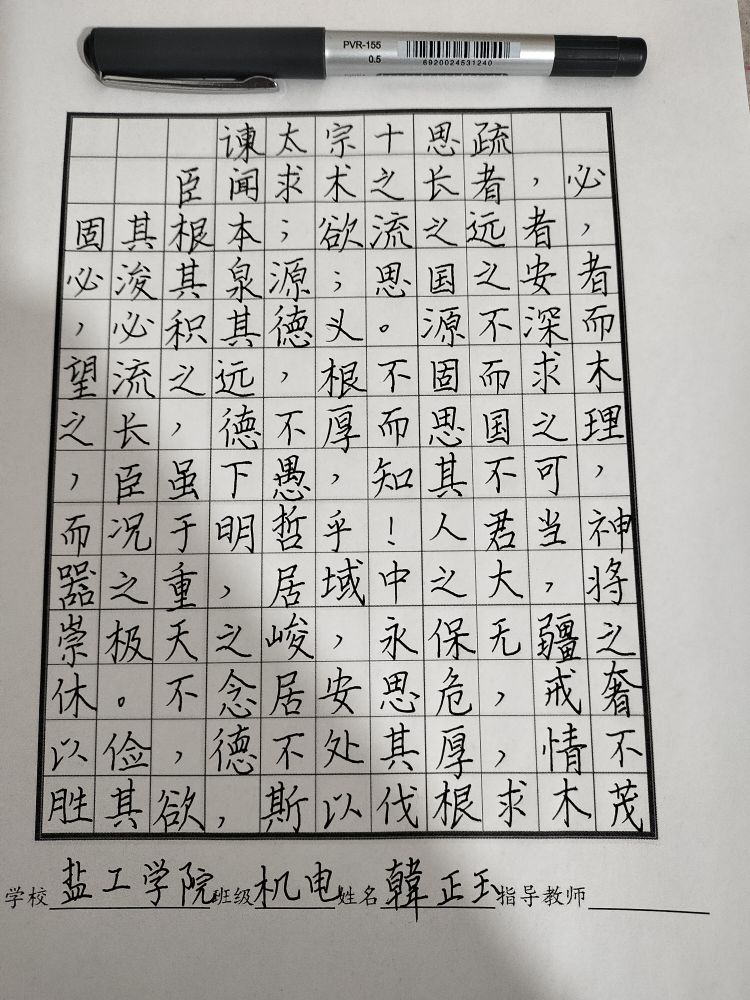 PVR-155
0.5
6920024531240
谏太宗十思疏
臣闻求术之长者，必
固其根本；欲流之远者，
必浚其泉源；思国之安者
，必积其德义。源不深而
望流之远，根不固而求木
之长，德不厚而思国之理
，臣虽下愚，知其不可，
而况于明哲乎！人君当神
器之重，居域中之大，将
崇极天之峻，永保无疆之
休。不念居安思危，戒奢
以俭，德不处其厚，情不
胜其欲，斯以伐根求木茂
学校盐工学院班级机电姓名韓正玉指导教师